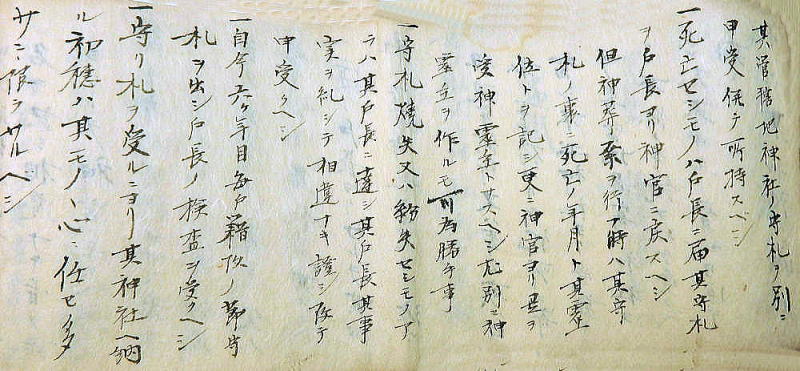 其管轄地神社ノ守札ヲ別ニ
申受併テ所持スベシ
一死亡セシモノハ戸長ニ届其守札
ヲ戸長ヨリ神官ニ戻スヘシ
但神葬祭ヲ行フ時ハ其守
札ノ裏ニ死亡ノ年月ト其霊
位トヲ記シ更ニ神官ヨリ是ヲ
受神霊主トナスヘシ尤別ニ神
霊主ヲ作ルモ可為勝手事
一守札焼失又ハ紛失セシモノア
ラハ其戸長ニ達シ其戸長其事
実ヲ糺シテ相違ナキ証シ改テ
申受クヘシ
一自今六ケ年目毎戸籍改ノ節守
札ヲ出シ戸長ノ検査ヲ受クヘシ
一守リ札ヲ受ルニヨリ其神社ヘ納
ル初穂ハ其モノノ心ニ任セ多
サニ限ラサルヘシ